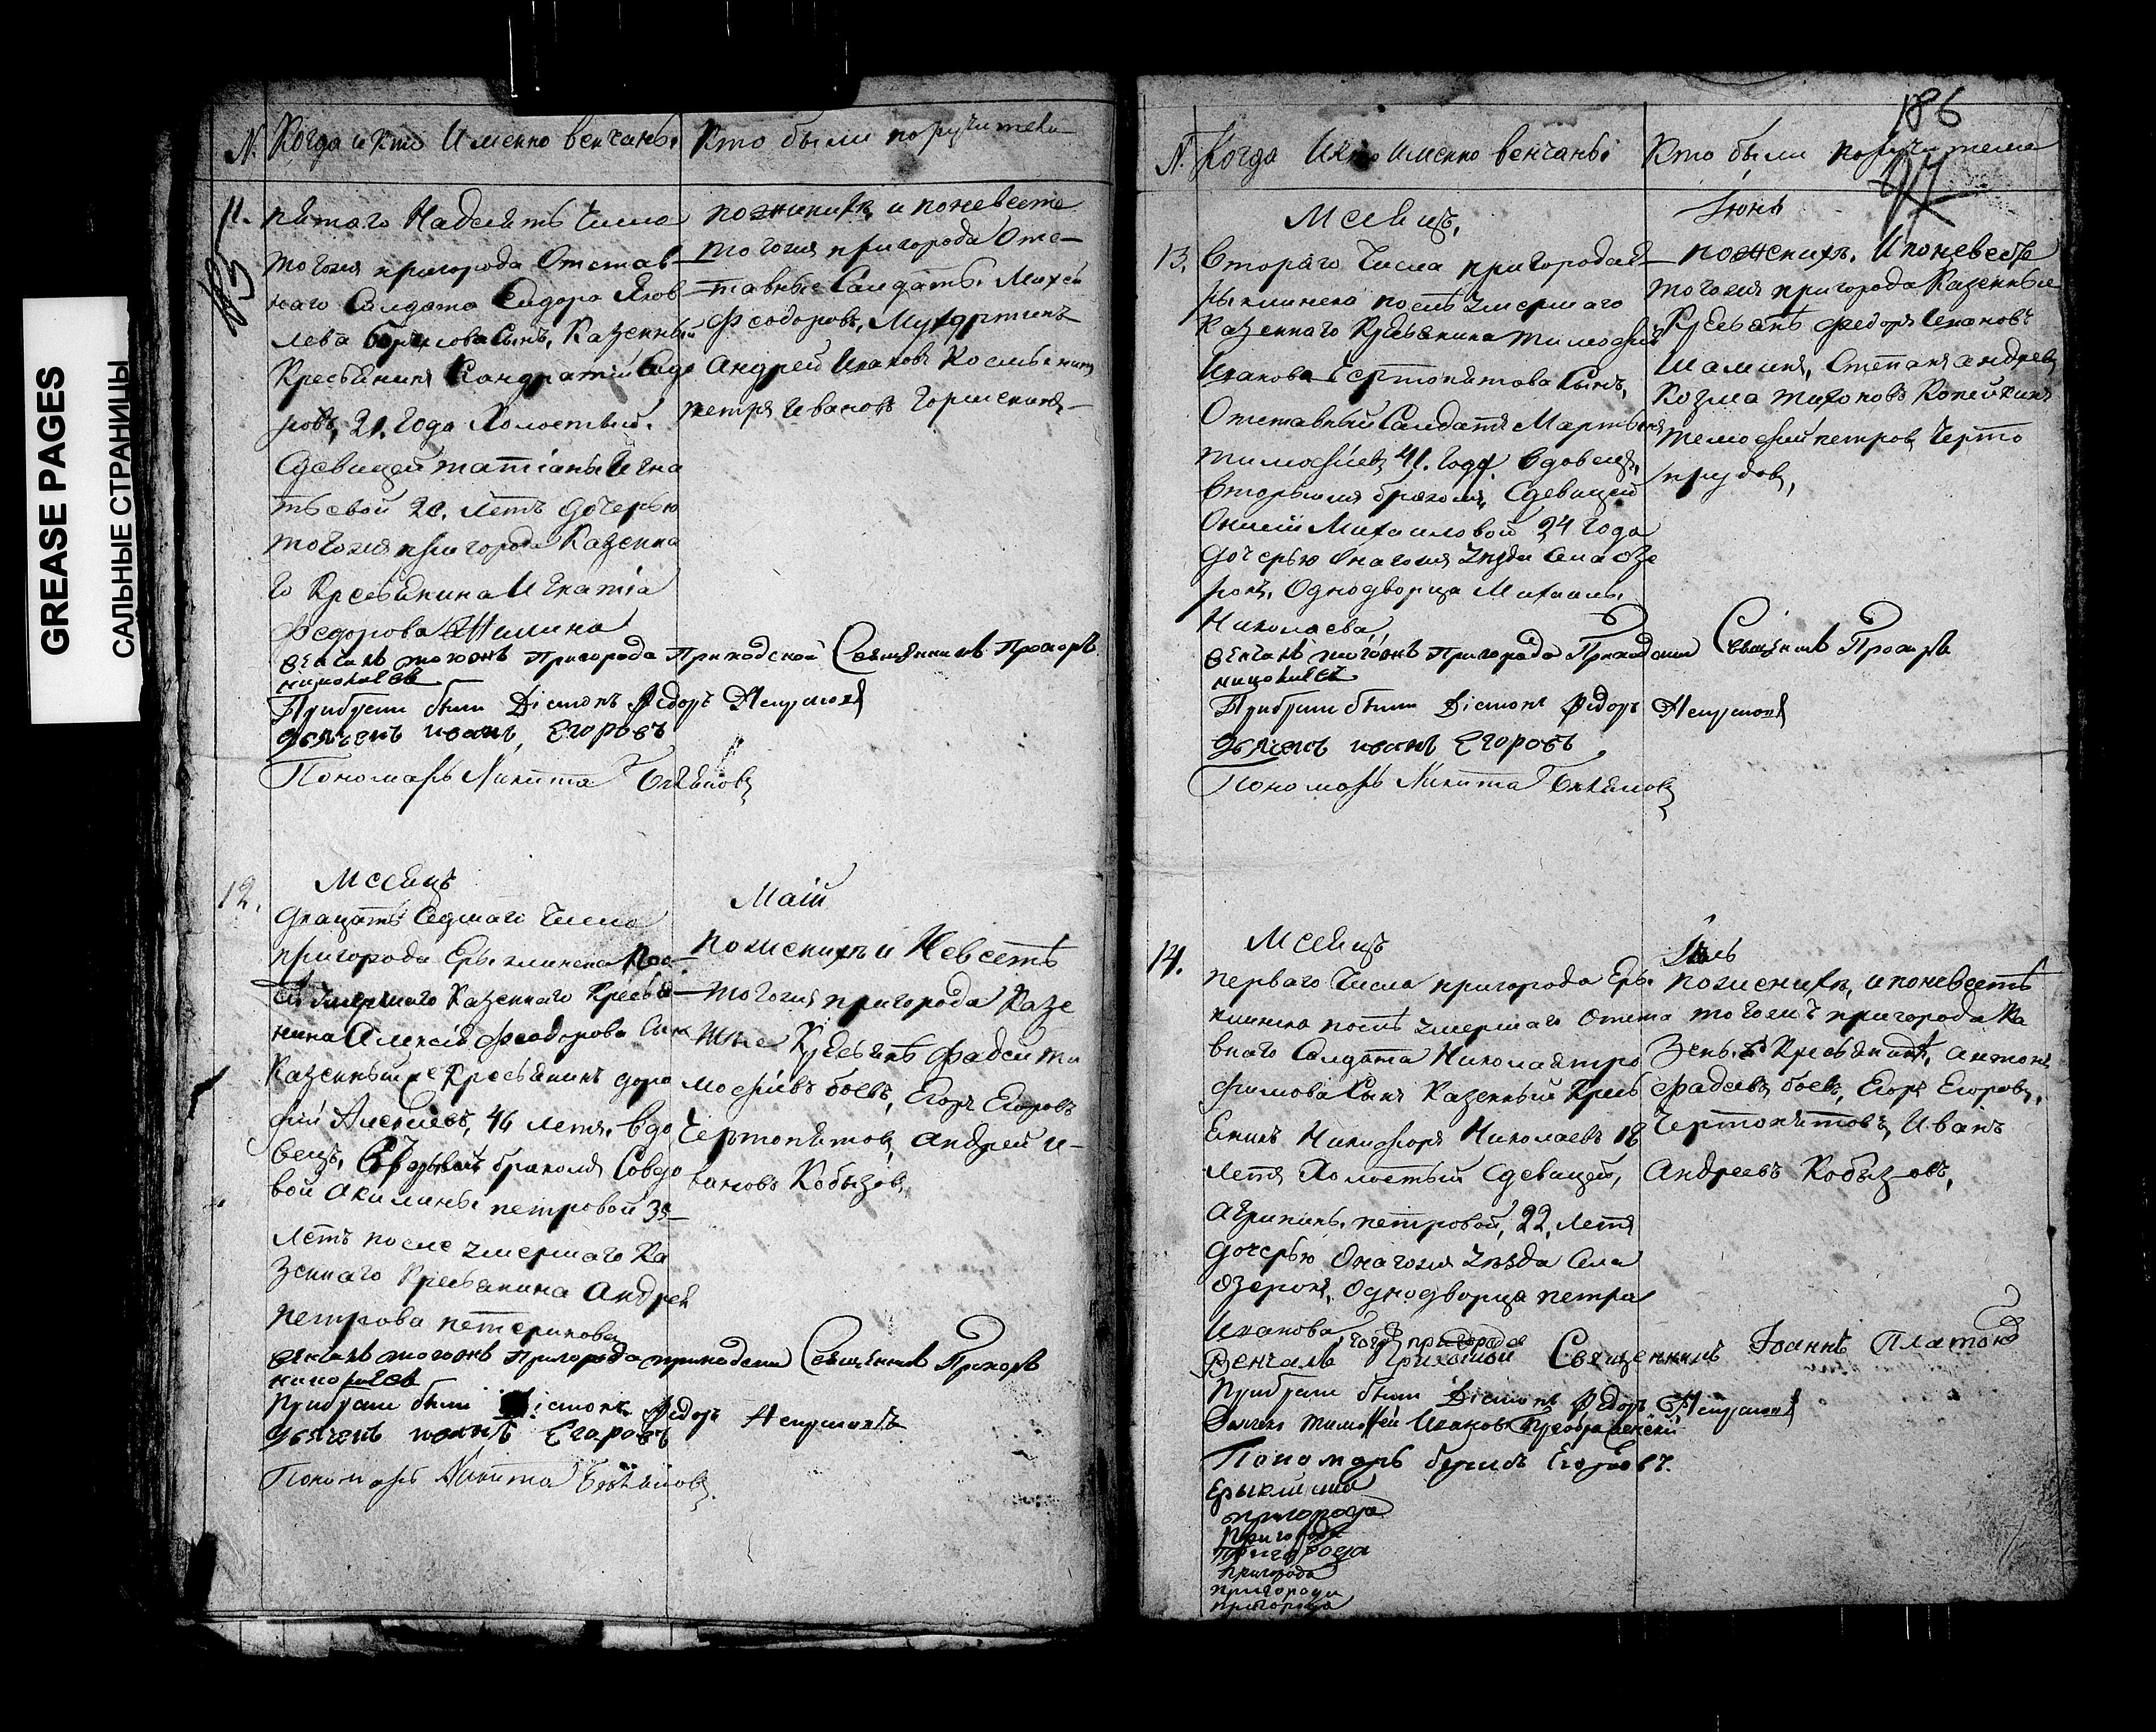 GREASE PAGES
САЛЬНЫЕ СТРАНИЦЫ
N. Когда и кто Именно венчаны
Кто были поручители
11.
пятаго Надсять Числа
тогоже пригорода Отстав
наго Салдата Сидора Яков
лева сынъ, Казенный
Кресьянинъ Кандратiй Сидо
ровъ, 21. года Холостый.
Сдевицей татiаны Игна
тьевой 20. летъ дочерью
тогоже пригорода Казенна
го Кресьянина Игнатiа
Федорова
венчалъ тогожъ Пригорода Приходской Священникъ Прохоръ
николаевъ
Прибрали были Дiаконъ Федоръ
дьячекъ иванъ Егоровъ
Пономарь Никита
поженихе и поневесте
тогожа пригорода Отс
тавные Салдаты Михей
Феодоровъ,
Андрей Иванов
петръ Иванов
12.
Месяцъ
Май
дватцать Седмаго Числа
пригорода Ерыклинска Пос
ле умершаго Казеннаго Кресья
нина Алексiя Феодорова Сын
Казенный Кресьянинъ доро
фей Алексеевъ, 46 летъ, вдо
вецъ, бракомъ Совдо
вой акилины петровой 35
Летъ после умершаго Ка
зеннаго Кресьянина Андрея
петрова
венчалъ тогожъ Пригорода приходской Священникъ Прохоръ
николаевъ
Прибрали были Дiаконъ Федоръ
дьячекъ иванъ Егаровъ
Пономарь Никита
поженихъ и Невестъ
тогожа пригорода Казе
ные Кресьянъ Фадей ти
мофѣевъ боевъ, Егоръ Егоровъ
Чертопятовъ, андрей и
вановъ Кобызовъ
186
N. Когда Икто именно венчаны
Кто были поручители
97
Месяцъ,
Iюнь
13.
втораго Числа пригорода Е
рыклинска послѣ умершаго
Казеннаго Кресьянина тимофея
Иванова Сынъ,
Отставный Салдатъ Мартынъ
тимофѣевъ 41. году вдовецъ,
вторымъ бракомъ, Сдевицей
Михаиловой 24 года
дочерью Онагожа уезда Села Озе
рокъ, Однодворца Михаилы
Николаева
венчалъ тогожъ Пригорода Приходской Священникъ Прохоръ
николаевъ
Прибрали были Дiаконъ Федоръ
дьячекъ иванъ Егоровъ
Пономарь Никита
поженихъ. И поневесте
тогожа пригорода Казенные
Кресьянъ Федоръ Ивановъ
Шаминъ, Степанъ андреевъ
Козма тихоновъ Копейкинъ
темофѣй петровъ Черто
прудовъ,
14.
Месяцъ
Iюль
перваго Числа пригорода Еры
клинска послѣ умершаго Отста
внаго Салдата Николая тро
фимова Сынъ Казенный Кресь
Енинъ Никифоръ Николаевъ 18
летъ Холостый Сдевицей,
агрипины петровой, 22, летъ
дочерью Онагожа уезда Села
Озерокъ, Однодворца петра
Иванова
того пригорода
Венчалъ Приходской Священникъ Iоаннъ Платоновъ
Прибрали были Дiаконъ Федоръ
Дьячекъ тимофей Ивановъ Преображенскiй
Пономарь Егоровъ.
Ерыклинска
пригорода
Пригорода
Пригорода
пригорода
пригорода
пригорода
поженихъ, и поневестъ
тогожъ пригорода Ка
зены Кресьянинъ, антонъ
Фадеевъ боевъ, Егоръ Егоровъ,
Чертопятовъ, Иванъ
Андреевъ Кобызовъ,